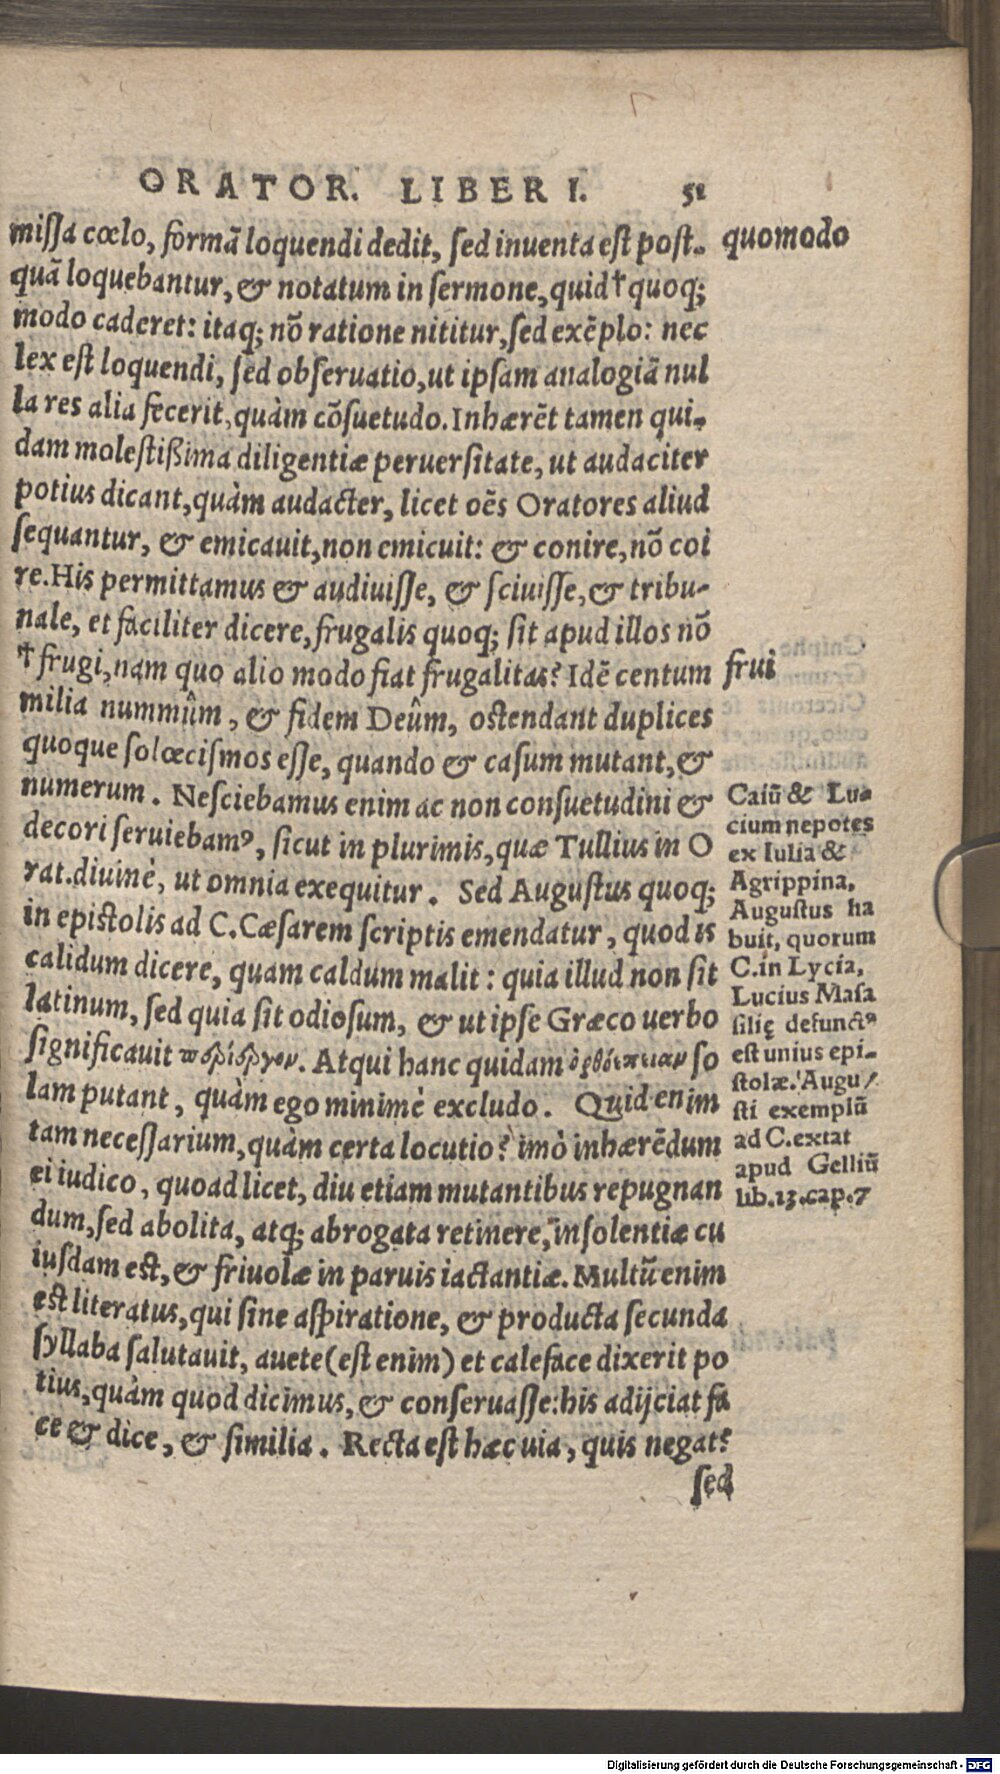 ORATOR. LIBER I. 51
missa cœlo, formã loquendi dedit, sed inuenta est post-
quã loquebantur, & notatum in sermone, quid † quoq;
modo caderet: itaq; nõ ratione nititur, sed exẽplo: nec
lex est loquendi, sed obseruatio, ut ipsam analogiã nul
la res alia fecerit, quàm cõsuetudo. Inhærẽt tamen qui-
dam molestißima diligentiæ peruersitate, ut audaciter
potius dicant, quàm audacter, licet oẽs Oratores aliud
sequantur, & emicauit, non emicuit: & conire, nõ coi
re. His permittamus & audiuisse, & sciuisse, & tribu-
nale, et faciliter dicere, frugalis quoq; sit apud illos nõ
† frugi, nam quo alio modo fiat frugalitas? Idẽ centum
milia nummûm, & fidem Deûm, ostendant duplices
quoque solœcismos esse, quando & casum mutant, &
numerum. Nesciebamus enim ac non consuetudini &
decori seruiebamꝰ, sicut in plurimis, quæ Tullius in O
rat. diuinè, ut omnia exequitur. Sed Augustus quoq;
in epistolis ad C. Cæsarem scriptis emendatur, quod is
calidum dicere, quam caldum malit: quia illud non sit
latinum, sed quia sit odiosum, & ut ipse Græco uerbo
significauit περίεργον. Atqui hanc quidam ὀρθοέπειαν so
lam putant, quàm ego minimè excludo. Quid enim
tam necessarium, quàm certa locutio? imò inhærẽdum
ei iudico, quoad licet, diu etiam mutantibus repugnan
dum, sed abolita, atq; abrogata retinere, insolentiæ cu
iusdam est, & friuolæ in paruis iactantiæ. Multũ enim
est literatus, qui sine aspiratione, & producta secunda
syllaba salutauit, auete (est enim) et caleface dixerit po
tius, quàm quod dicimus, & conseruasse: his adijciat fa
ce & dice, & similia. Recta est hæc uia, quis negat?
sed
quomodo
frui
Caiũ & Lu-
cium nepotes
ex Iulia &
Agrippina,
Augustus ha
buit, quorum
C. in Lycia,
Lucius Masa
silię defunctꝰ
est unius epi-
stolæ. Augu/
sti exemplũ
ad C. extat
apud Gelliũ
lib. 13. cap. 7
Digitalisierung gefördert durch die Deutsche Forschungsgemeinschaft - DFG